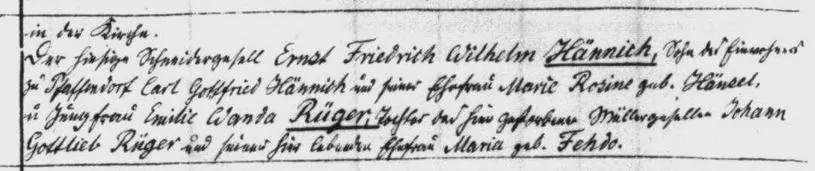 in der Kirche.
Der hiesige Schneidergesell Ernst Friedrich Wilhelm Hännich, Sohn des Einwohners
zu Pfaffendorf Carl Gottfried Hännich und seiner Ehefrau Marie Rosine geb. Hänsel,
u Jungfrau Emilie Wanda Rüger, Tochter des hier gestorbenen Müllergesellen Johann
Gottlieb Rüger und seiner hier lebenden Ehefrau Maria geb. Fehdo.